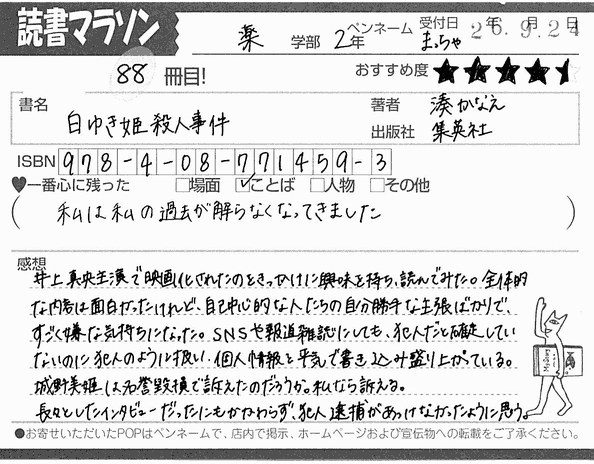 読書マラソン
薬 学部 2年 ペンネーム まっちゃ 受付日 26.9.24 年 月 日
88 冊目! おすすめ度 ★★★★
書名 白ゆき姫殺人事件
著者 湊かなえ
出版社 集英社
ISBN 978-4-08-771459-3
♥一番心に残った □場面 ☑ことば □人物 □その他
(私は私の過去が解らなくなってきました)
感想
井上真央主演で映画化されたのときっかけに興味を持ち、読んでみた。全体的
な内容は面白かったけれど、自己中心的な人たちの自分勝手な主張ばかりで、
すごく嫌な気持ちになった。SNSや報道雑誌にしても、犯人だと確定してい
ないのに犯人のように扱い、個人情報を平気で書き込み盛り上がっている。
城野美姫は名誉毀損で訴えたのだろうか。私なら訴える。
長々としたインタビューだったにもかかわらず、犯人逮捕があっけなかったように思う。
●お寄せいただいたPOPはペンネームで、店内で掲示、ホームページおよび宣伝物への転載をご了承ください。